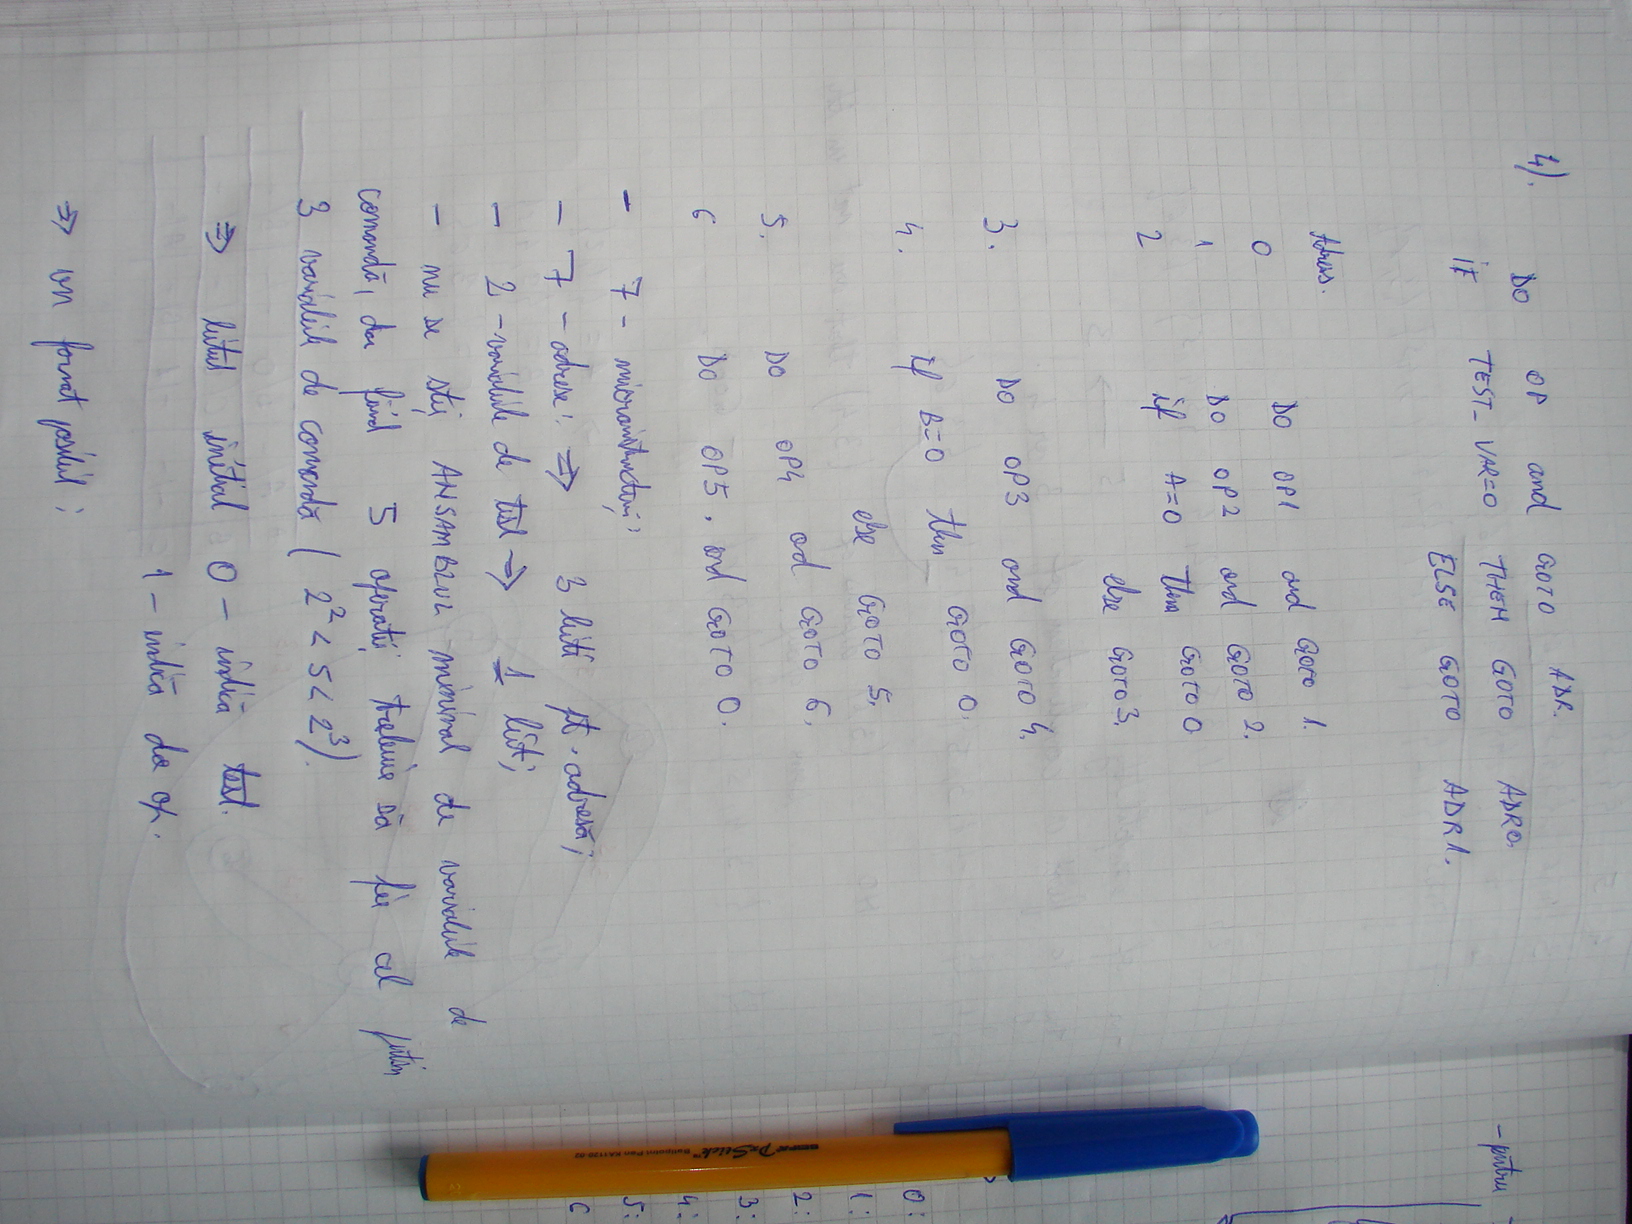 4).
DO OP and GOTO ADR.
IF TEST_VAR=0 THEN GOTO ADR0.
ELSE GOTO ADR1.
Adress.
0 DO OP1 and GOTO 1.
1 DO OP2 and GOTO 2.
2 if A=0 then GOTO 0
else GOTO 3.
3. DO OP3 and GOTO 4.
4. if B=0 then GOTO 0.
else GOTO 5.
5. DO OP4 and GOTO 6.
6 DO OP5. and GOTO 0.
- 7 - microinstructiuni;
- 7 - adrese: => 3 biti pt. adresă;
- 2 - variabile de test => 1 bit;
- nu se stie ANSAMBLUL minimal de variabile de
comandă, dar fiind 5 operatii trebuie să fie cel putin
3 variabile de comandă ( 2² < 5 < 2³ ).
=> bitul initial 0 - indica test.
1 - indică do op.
=> un format posibil:
- pentru
0:
1:
2:
3:
4:
5:
6
ProStick